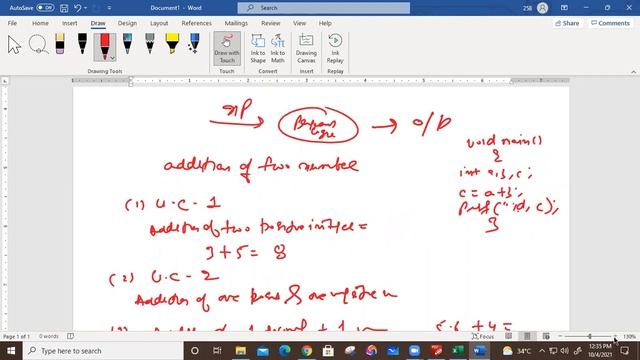 AutoSave Off Document1 - Word Search 258
File Home Insert Draw Design Layout References Mailings Review View Help Share Comments
Draw with Touch Ink to Shape Ink to Math Drawing Canvas Ink Replay
Drawing Tools Touch Convert Insert Replay
I/P → → O/P
addition of two number
(1) U.C-1
Addition of two
3+5= 8
(2) U.C-2
Addition of one
void main()
{
int a,b,c;
c=a+b;
printf("%d, c);
}
5.6 + 4 =
Page 1 of 1 0 words 130%
Type here to search 34°C 12:35 PM 10/4/2021